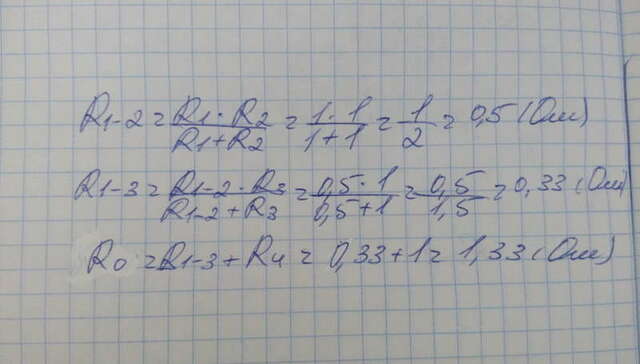 R1-2 = R1·R2 / R1+R2 = 1·1 / 1+1 = 1/2 = 0,5 (Ом)
R1-3 = R1-2·R3 / R1-2+R3 = 0,5·1 / 0,5+1 = 0,5/1,5 = 0,33 (Ом)
R0 = R1-3+R4 = 0,33+1 = 1,33 (Ом)